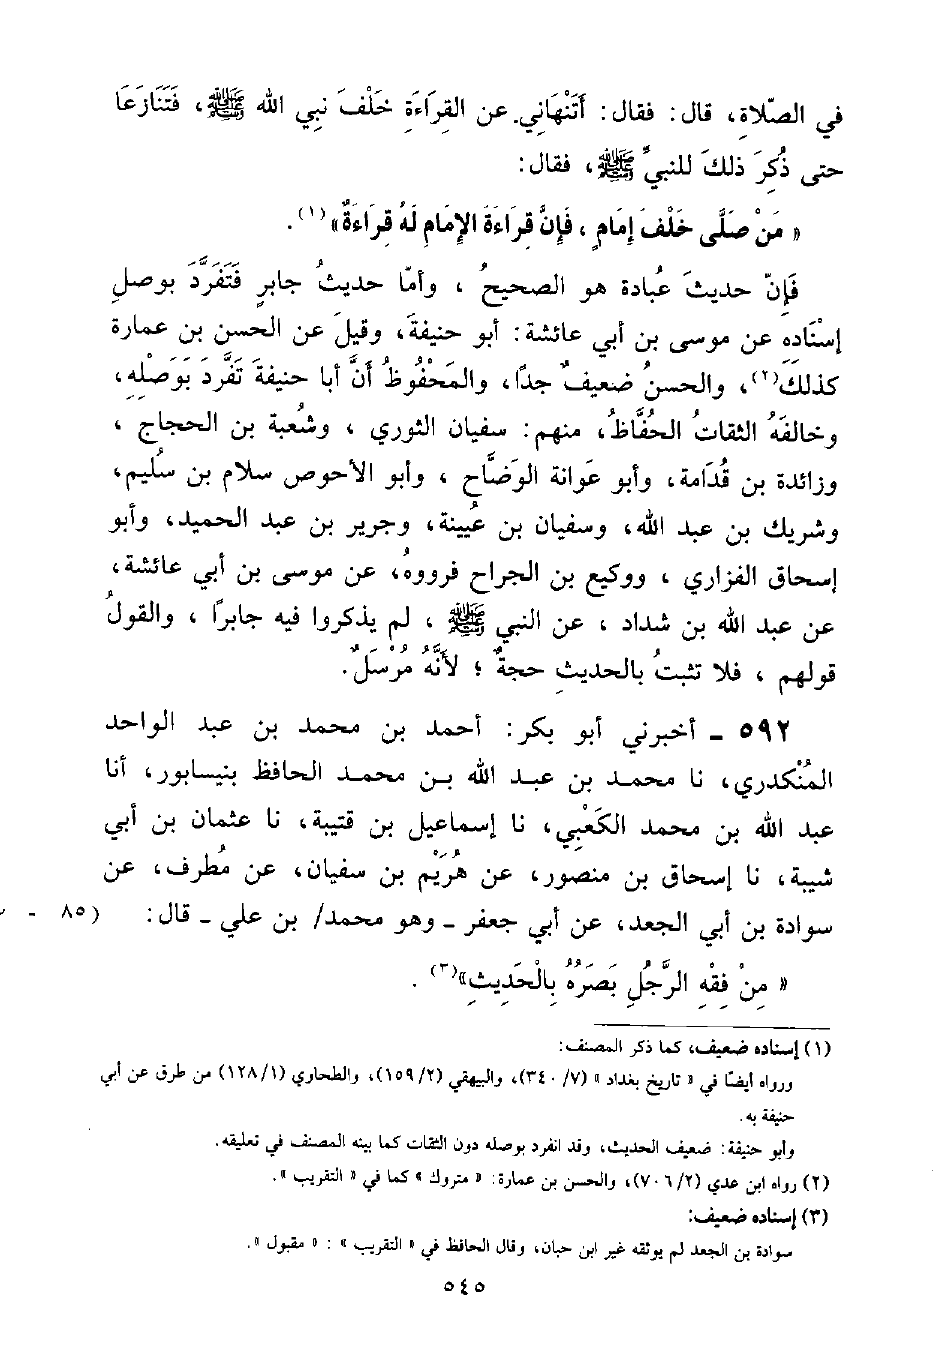 في الصّلاةِ، قال: فقال: أَتَنْهَاني عن القِرَاءَةِ خَلْفَ نبي الله ﷺ، فَتَنَازَعَا
حتى ذُكِرَ ذلكَ للنبيِّ ﷺ، فقال:
« مَنْ صَلَّى خَلْفَ إِمَامٍ ، فَإِنَّ قِرَاءَةَ الإِمَامِ لَهُ قِرَاءَةٌ»(١).
فَإِنّ حديثَ عُبادة هو الصحيحُ ، وأمّا حديثُ جابرٍ فَتَفَرَّدَ بوصلِ
إسْنَادِهِ عن موسى بن أبي عائشة: أبو حنيفةَ، وقيلَ عن الحسن بن عمارة
كذلكَ(٢)، والحسنُ ضعيفٌ جدًا، والمَحْفُوظُ أنَّ أبا حنيفةَ تَفَّردَ بَوَصَلِهِ،
وخالفَهُ الثقاتُ الحُفَّاظُ، منهم: سفيان الثوري ، وشُعبة بن الحجاج ،
وزائدة بن قُدَامة، وأبو عَوانة الوَضَّاح ، وأبو الأحوص سلام بن سُليم،
وشريك بن عبد الله، وسفيان بن عُيينة، وجرير بن عبد الحميد، وأبو
إسحاق الفزاري ، ووكيع بن الجراح فرووهُ، عن موسى بن أبي عائشة،
عن عبد الله بن شداد ، عن النبي ﷺ ، لم يذكروا فيه جابرًا ، والقولُ
قولهم ، فلا تثبتُ بالحديثِ حجةٌ ؛ لأَنَّهُ مُرْسَلٌ.
٥٩٢ ـ أخبرني أبو بكر: أحمد بن محمد بن عبد الواحد
المُنْكدري، نا محمد بن عبد الله بن محمد الحافظ بنيسابور، أنا
عبد الله بن محمد الكَعْبي، نا إسماعيل بن قتيبة، نا عثمان بن أبي
شيبة، نا إسحاق بن منصور، عن هُرَيْمِ بن سفيان، عن مُطرف، عن
سوادة بن أبي الجعد، عن أبي جعفر ـ وهو محمد/ بن علي ـ قال: (٨٥ -
« مِنْ فِقْهِ الرَّجُلِ بَصَرُهُ بِالْحَدِيثِ»(٣) .
(١) إسناده ضعيف، كما ذكر المصنف:
ورواه أيضًا في « تاريخ بغداد » (٣٤٠/٧)، والبيهقي (١٥٩/٢)، والطحاري (١٢٨/١) من طرق عن أبي
حنيفة به.
وأبو حنيفة: ضعيف الحديث، وقد انفرد بوصله دون الثقات كما بينه المصنف في تعليقه.
(٢) رواه ابن عدي (٧٠٦/٢)، والحسن بن عمارة: « متروك » كما في « التقريب ».
(٣) إسناده ضعيف:
سوادة بن الجعد لم يوثقه غير ابن حبان، وقال الحافظ في « التقريب » : « مقبول ».
٥٤٥